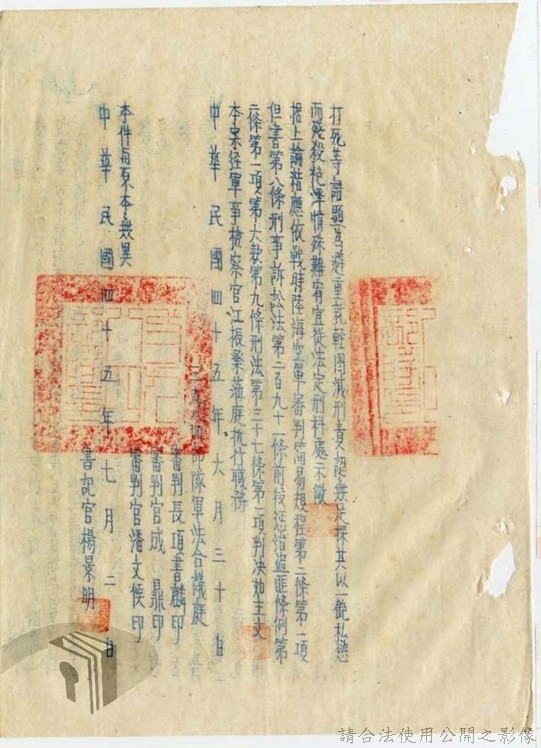 打死等語顯為避重就輕圖減刑責
而慘殺
情殊難宥宜從法定刑科處示儆
據上論結應依戰時陸海空軍審判簡易規程第二條第一項
但書第八條刑事訴訟法第二百九十一條前段懲治盜匪條例第
二條第一項第六款第九條刑法第三十七條第一項判決如主文
本案經軍事檢察官江振桑蒞庭執行職務
中華民國四十五年六月三十日
軍法合議庭
審判長項書麟印
審判官成 鼎印
審判官潘文俟印
本件與原本無異
中華民國四十五年七月二日
書記官楊景明
請合法使用公開之影像